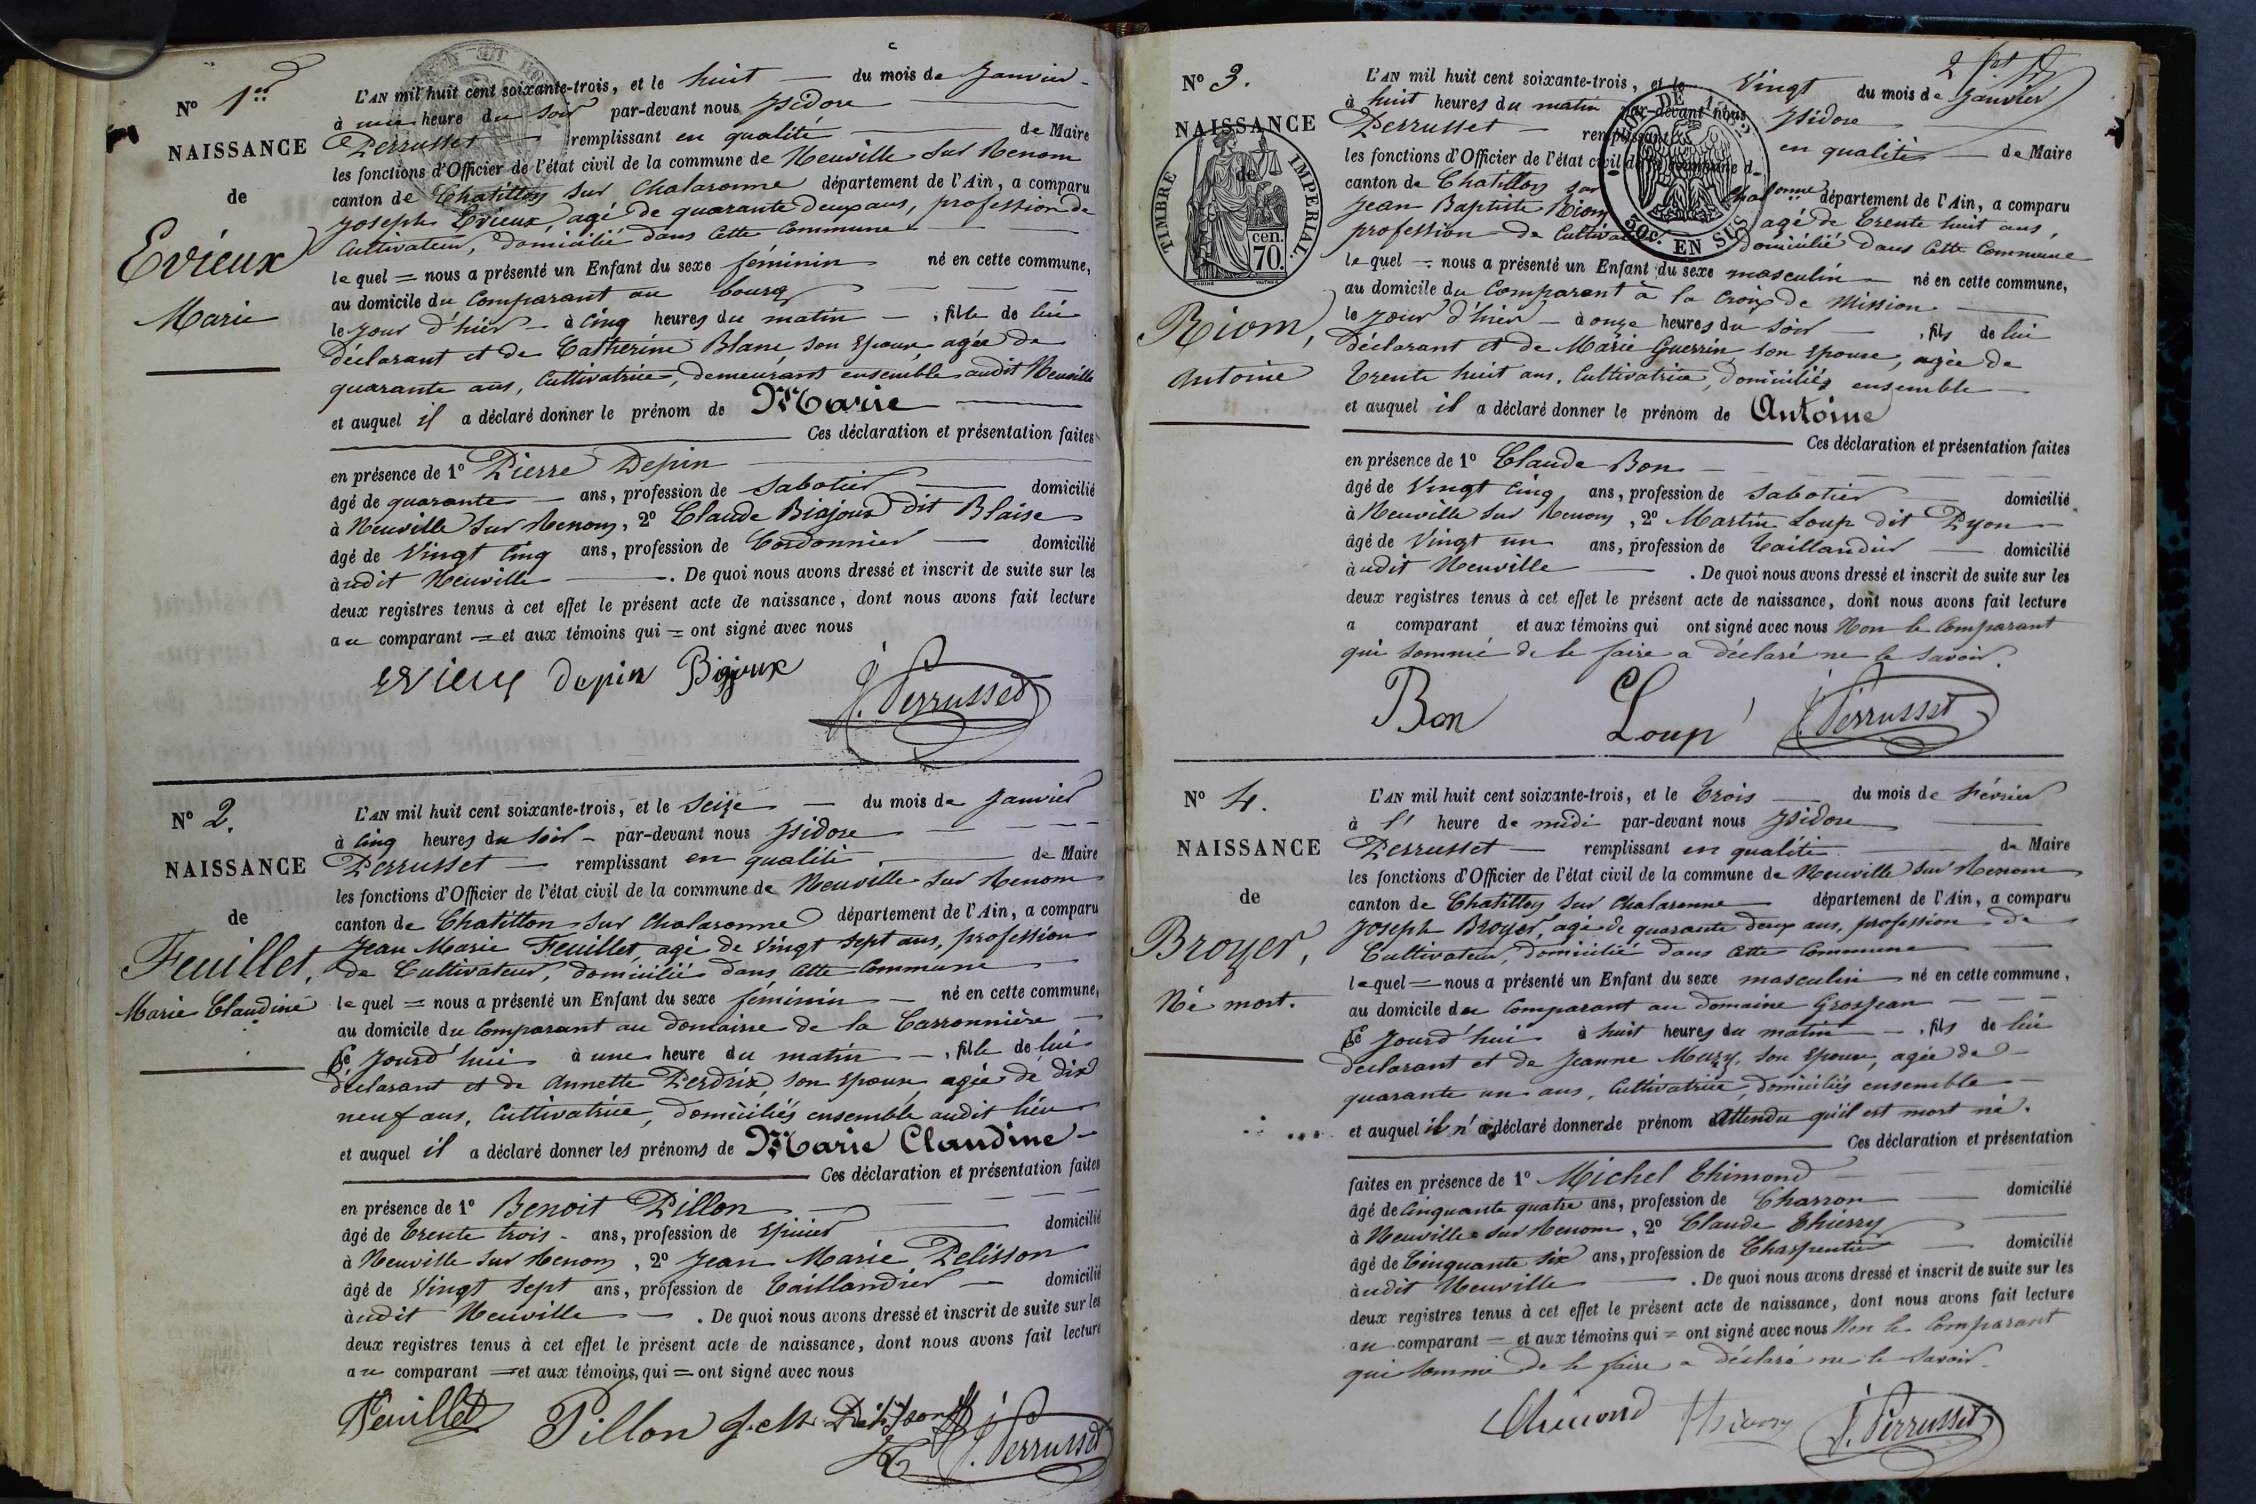 N° 1er
NAISSANCE
de
Evieux
Marie
L'AN mil huit cent soixante-trois, et le huit du mois de Janvier
à une heure du soir par-devant nous Isidore
Perrusset remplissant en qualité de Maire
les fonctions d'Officier de l'état civil de la commune de Neuville sur Renom
canton de Chatillon sur Chalaronne département de l'Ain, a comparu
Joseph Evieux, agé de quarante deux ans, profession de
Cultivateur, domicilié dans cette Commune
lequel = nous a présenté un Enfant du sexe féminin né en cette commune,
au domicile du Comparant au bourg
le jour d'hier à cinq heures du matin , fille de lui
déclarant et de Catherine Blanc son épouse, agée de
quarante ans, Cultivatrice, demeurant ensemble audit Neuville
et auquel il a déclaré donner le prénom de Marie
Ces déclaration et présentation faites
en présence de 1° Pierre Depin
âgé de quarante ans, profession de Sabotier domicilié
à Neuville sur Renom, 2° Claude Biajoux dit Blaise
âgé de Vingt Cinq ans, profession de Cordonnier domicilié
audit Neuville . De quoi nous avons dressé et inscrit de suite sur les
deux registres tenus à cet effet le présent acte de naissance, dont nous avons fait lecture
au comparant = et aux témoins qui = ont signé avec nous
Evieux Depin Bijoux J. Perrusset
N° 2.
NAISSANCE
de
Feuillet,
Marie Claudine
L'AN mil huit cent soixante-trois, et le Seize du mois de Janvier
à Cinq heures du soir par-devant nous Isidore
Perrusset remplissant en qualité de Maire
les fonctions d'Officier de l'état civil de la commune de Neuville sur Renom
canton de Chatillon sur Chalaronne département de l'Ain, a comparu
Jean Marie Feuillet, agé de Vingt sept ans, profession
de Cultivateur, domicilié dans cette Commune
lequel = nous a présenté un Enfant du sexe féminin né en cette commune,
au domicile du Comparant au domaine de la Carronnière
ce Jourd'hui à une heure du matin , fille de lui
déclarant et de Annette Perdrix, son épouse, agée de dix
neuf ans, Cultivatrice, domiciliés ensemble audit lieu
et auquel il a déclaré donner les prénoms de Marie Claudine
Ces déclaration et présentation faites
en présence de 1° Benoit Pillon
âgé de trente trois ans, profession de Epicier domicilié
à Neuville sur Renom, 2° Jean Marie Pelisson
âgé de Vingt Sept ans, profession de Taillandier domicilié
audit Neuville . De quoi nous avons dressé et inscrit de suite sur les
deux registres tenus à cet effet le présent acte de naissance, dont nous avons fait lecture
au comparant = et aux témoins, qui = ont signé avec nous
Feuillet Pillon J. M. Pelisson J. Perrusset
2
N° 3.
NAISSANCE
de
TIMBRE IMPERIAL.
cen.
70.
Riom,
Antoine
L'AN mil huit cent soixante-trois, et le Vingt du mois de Janvier
à huit heures du matin par-devant nous Isidore
Perrusset remplissant en qualité de Maire
les fonctions d'Officier de l'état civil de la commune d
canton de Chatillon sur Chalaronne département de l'Ain, a comparu
Jean Baptiste Riom agé de trente huit ans,
profession de Cultivateur domicilié dans Cette Commune
50c. EN SUS
lequel = nous a présenté un Enfant du sexe masculin né en cette commune,
au domicile du Comparant à la Croix de Mission
le jour d'hier à onze heures du soir , fils de lui
déclarant et de Marie Guerrin son épouse, agée de
trente huit ans, Cultivatrice, domiciliés ensemble
et auquel il a déclaré donner le prénom de Antoine
Ces déclaration et présentation faites
en présence de 1° Claude Bon
âgé de Vingt Cinq ans, profession de Sabotier domicilié
à Neuville sur Renom, 2° Martin Loup dit Pyon
âgé de Vingt un ans, profession de Taillandier domicilié
audit Neuville . De quoi nous avons dressé et inscrit de suite sur les
deux registres tenus à cet effet le présent acte de naissance, dont nous avons fait lecture
a comparant et aux témoins qui ont signé avec nous Non le Comparant
qui sommé de le faire a déclaré ne le savoir.
Bon Loup J. Perrusset
N° 4.
NAISSANCE
de
Broyer,
Né mort.
L'AN mil huit cent soixante-trois, et le Trois du mois de Février
à l' heure de midi par-devant nous Isidore
Perrusset remplissant en qualité de Maire
les fonctions d'Officier de l'état civil de la commune de Neuville sur Renom
canton de Chatillon sur Chalaronne département de l'Ain, a comparu
Joseph Broyer, agé de quarante deux ans, profession de
Cultivateur, domicilié dans cette Commune
lequel = nous a présenté un Enfant du sexe masculin né en cette commune,
au domicile du Comparant au domaine Grosjean
ce Jourd'hui à huit heures du matin , fils de lui
déclarant et de Jeanne Mury, son épouse, agée de
quarante un ans, Cultivatrice, domiciliés ensemble
et auquel il n'a déclaré donner de prénom Attendu qu'il est mort né.
Ces déclaration et présentation
faites en présence de 1° Michel Thimond
âgé de Cinquante quatre ans, profession de Charron domicilié
à Neuville sur Renom, 2° Claude Thierry
âgé de Cinquante Six ans, profession de Charpentier domicilié
audit Neuville . De quoi nous avons dressé et inscrit de suite sur les
deux registres tenus à cet effet le présent acte de naissance, dont nous avons fait lecture
au comparant = et aux témoins qui = ont signé avec nous Non le Comparant
qui sommé de le faire a déclaré ne le savoir.
Thimond Thierry J. Perrusset